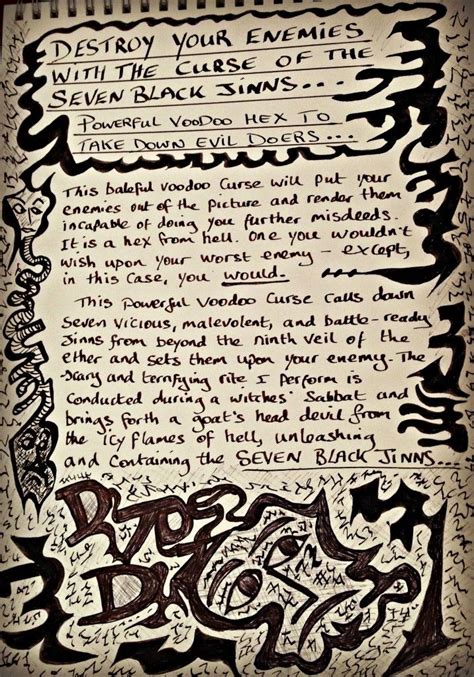 DESTROY YOUR ENEMIES
WITH THE CURSE OF THE
SEVEN BLACK JINNS...
POWERFUL VOODOO HEX TO
TAKE DOWN EVIL DOERS...
This baleful voodoo curse will put your
enemies out of the picture and render them
incapable of doing you further misdeeds.
It is a hex from hell. One you wouldn't
wish upon your worst enemy - except,
in this case, you would.
This Powerful Voodoo Curse calls down
seven vicious, malevolent, and battle-ready
Jinns from beyond the ninth veil of the
ether and sets them upon your enemy. The
scary and terrifying rite I perform is
conducted during a witches' Sabbat and
brings forth a goat's head devil from
the icy flames of hell, unleashing
and containing the SEVEN BLACK JINNS...